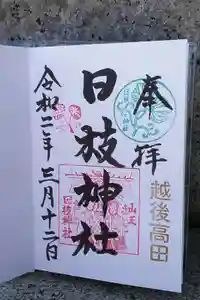 奉拝
越後高田
日枝神社
山王
日枝神社
令和二年三月十二日